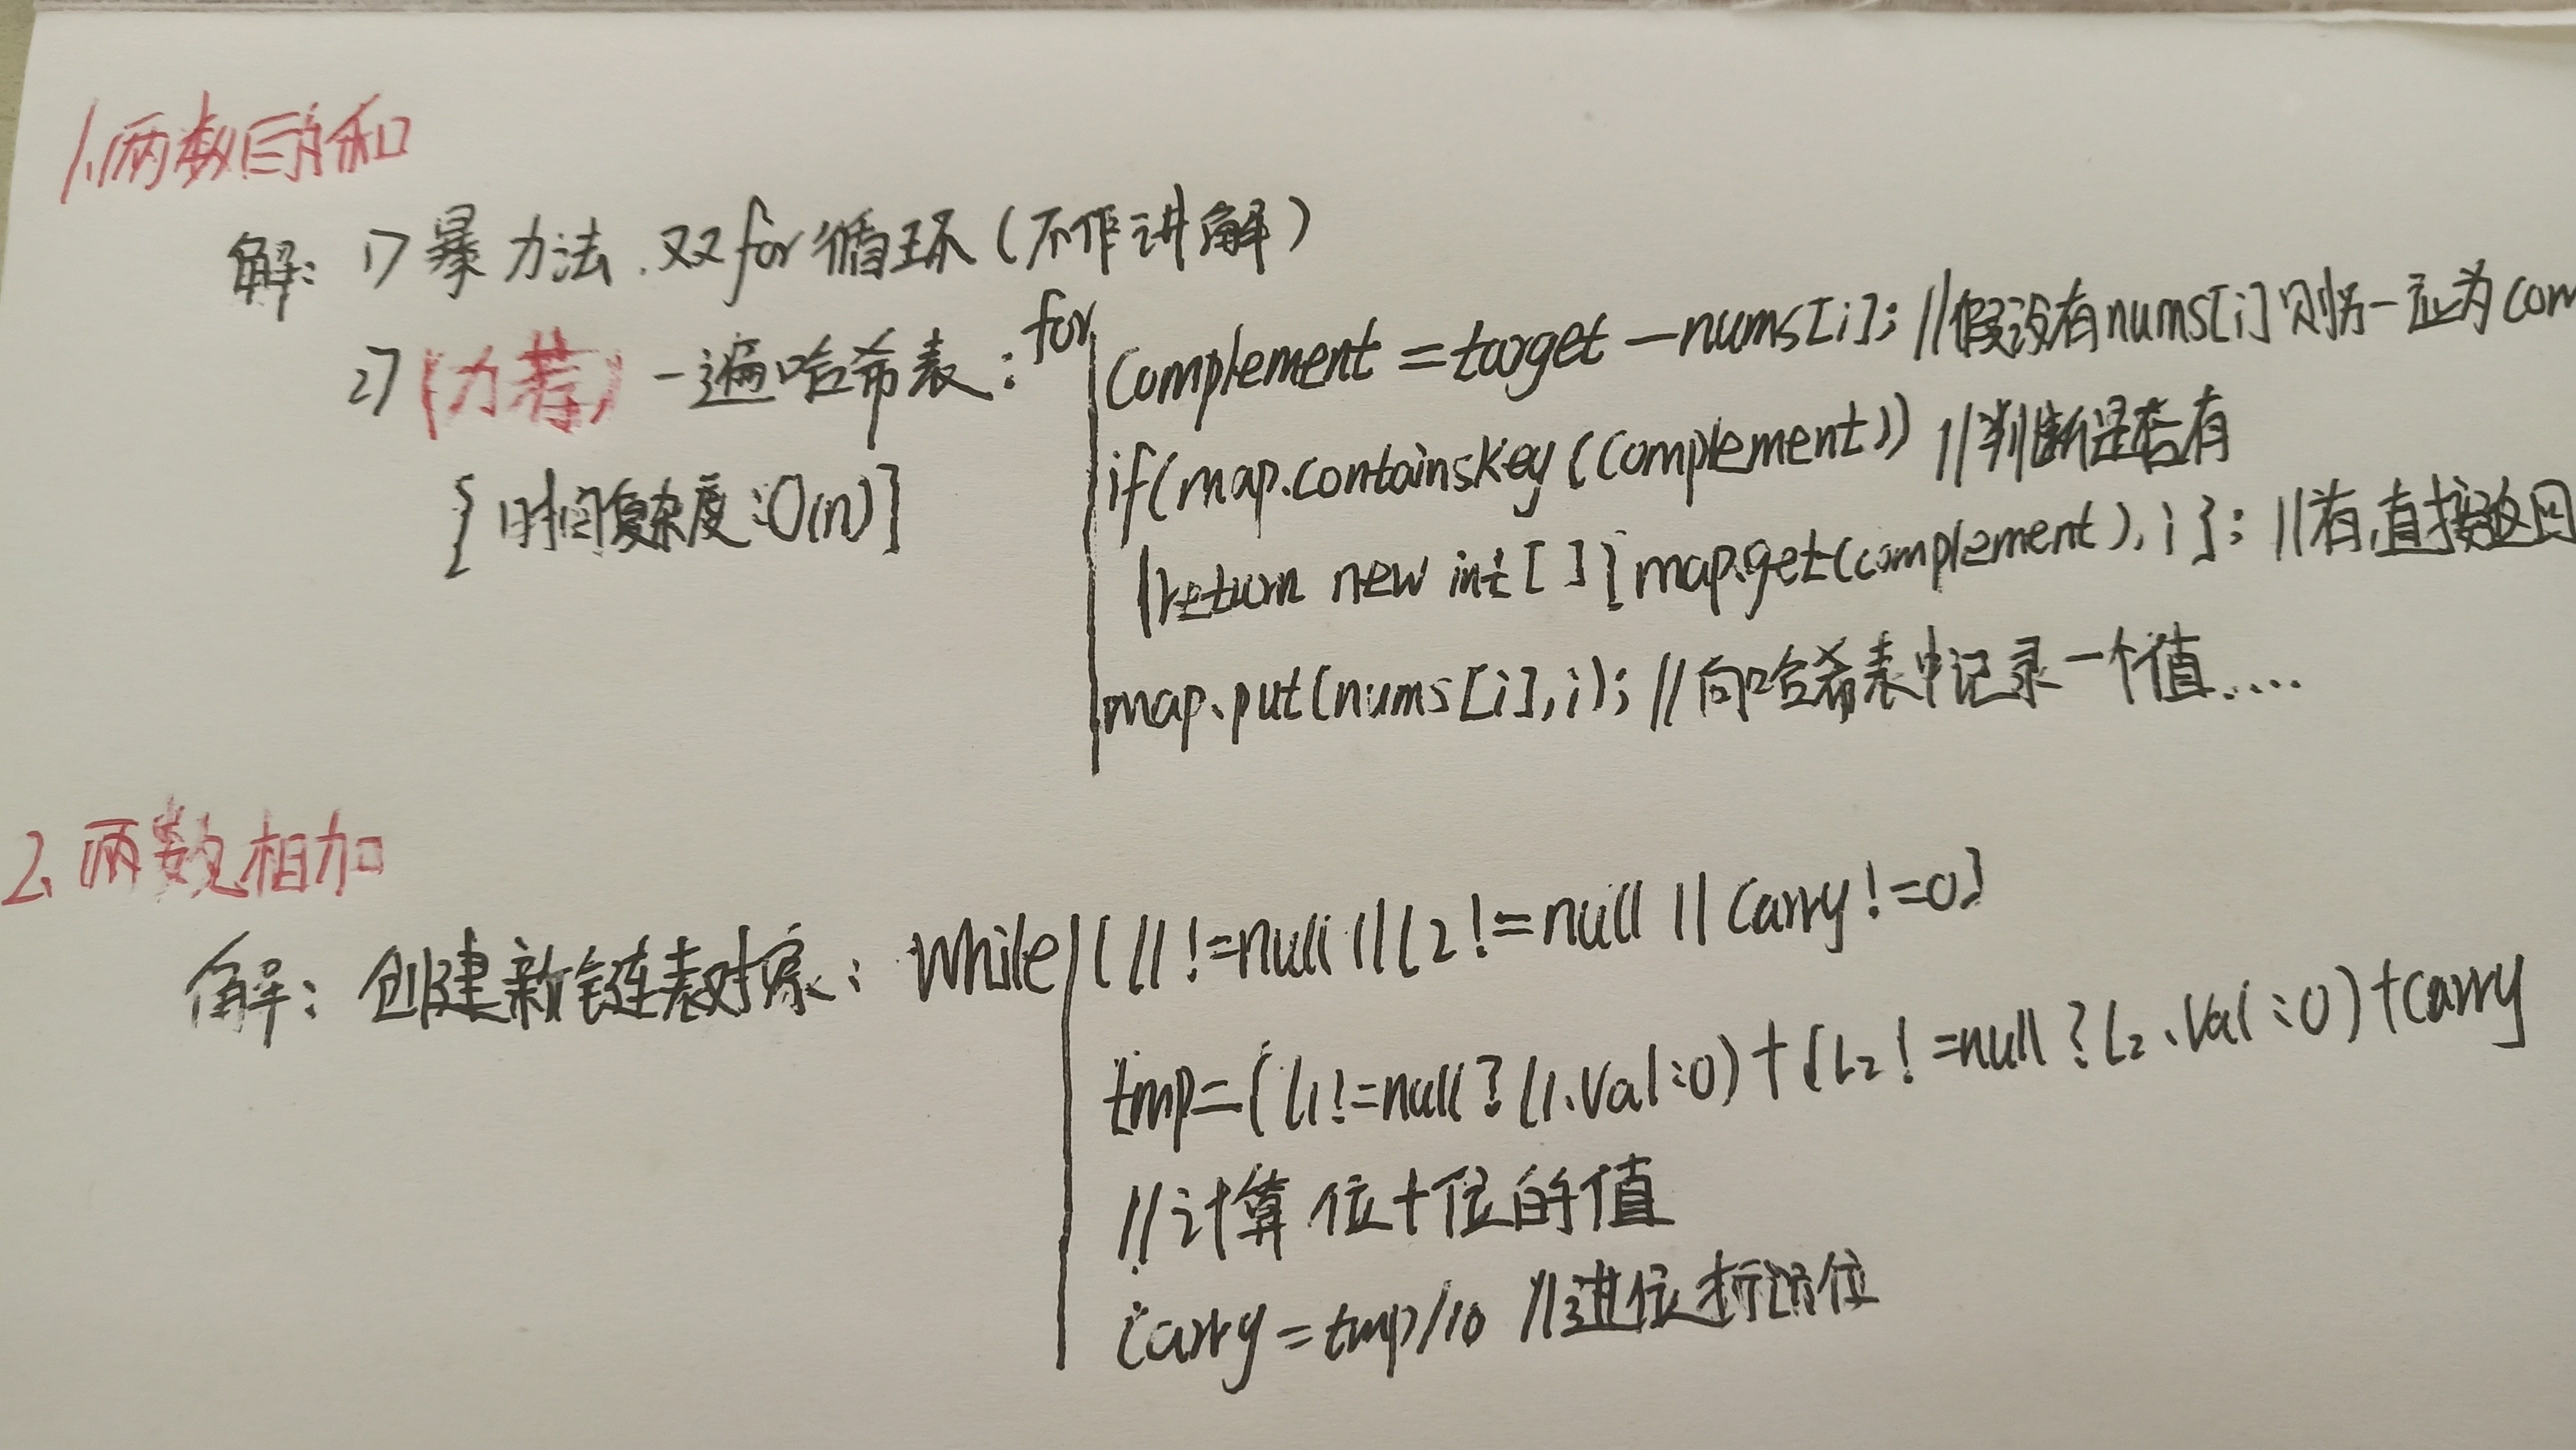 1.两数的和
解: 1) 暴力法.双for循环(不作讲解)
2) (力荐) 一遍哈希表: for
[时间复杂度:O(n)]
Complement = target - nums[i]; //假设有nums[i]则另一应为com
if(map.containsKey(complement)) //判断是否有
return new int[]{map.get(complement), i}; //有,直接返回
map.put(nums[i], i); //向哈希表中记录一个值.....
2.两数相加
解: 创建新链表对象: while (l1!=null || l2!=null || carry!=0)
tmp=(l1!=null?l1.val:0)+(l2!=null?l2.val:0)+carry
//计算 位+位的值
carry=tmp/10 //进位